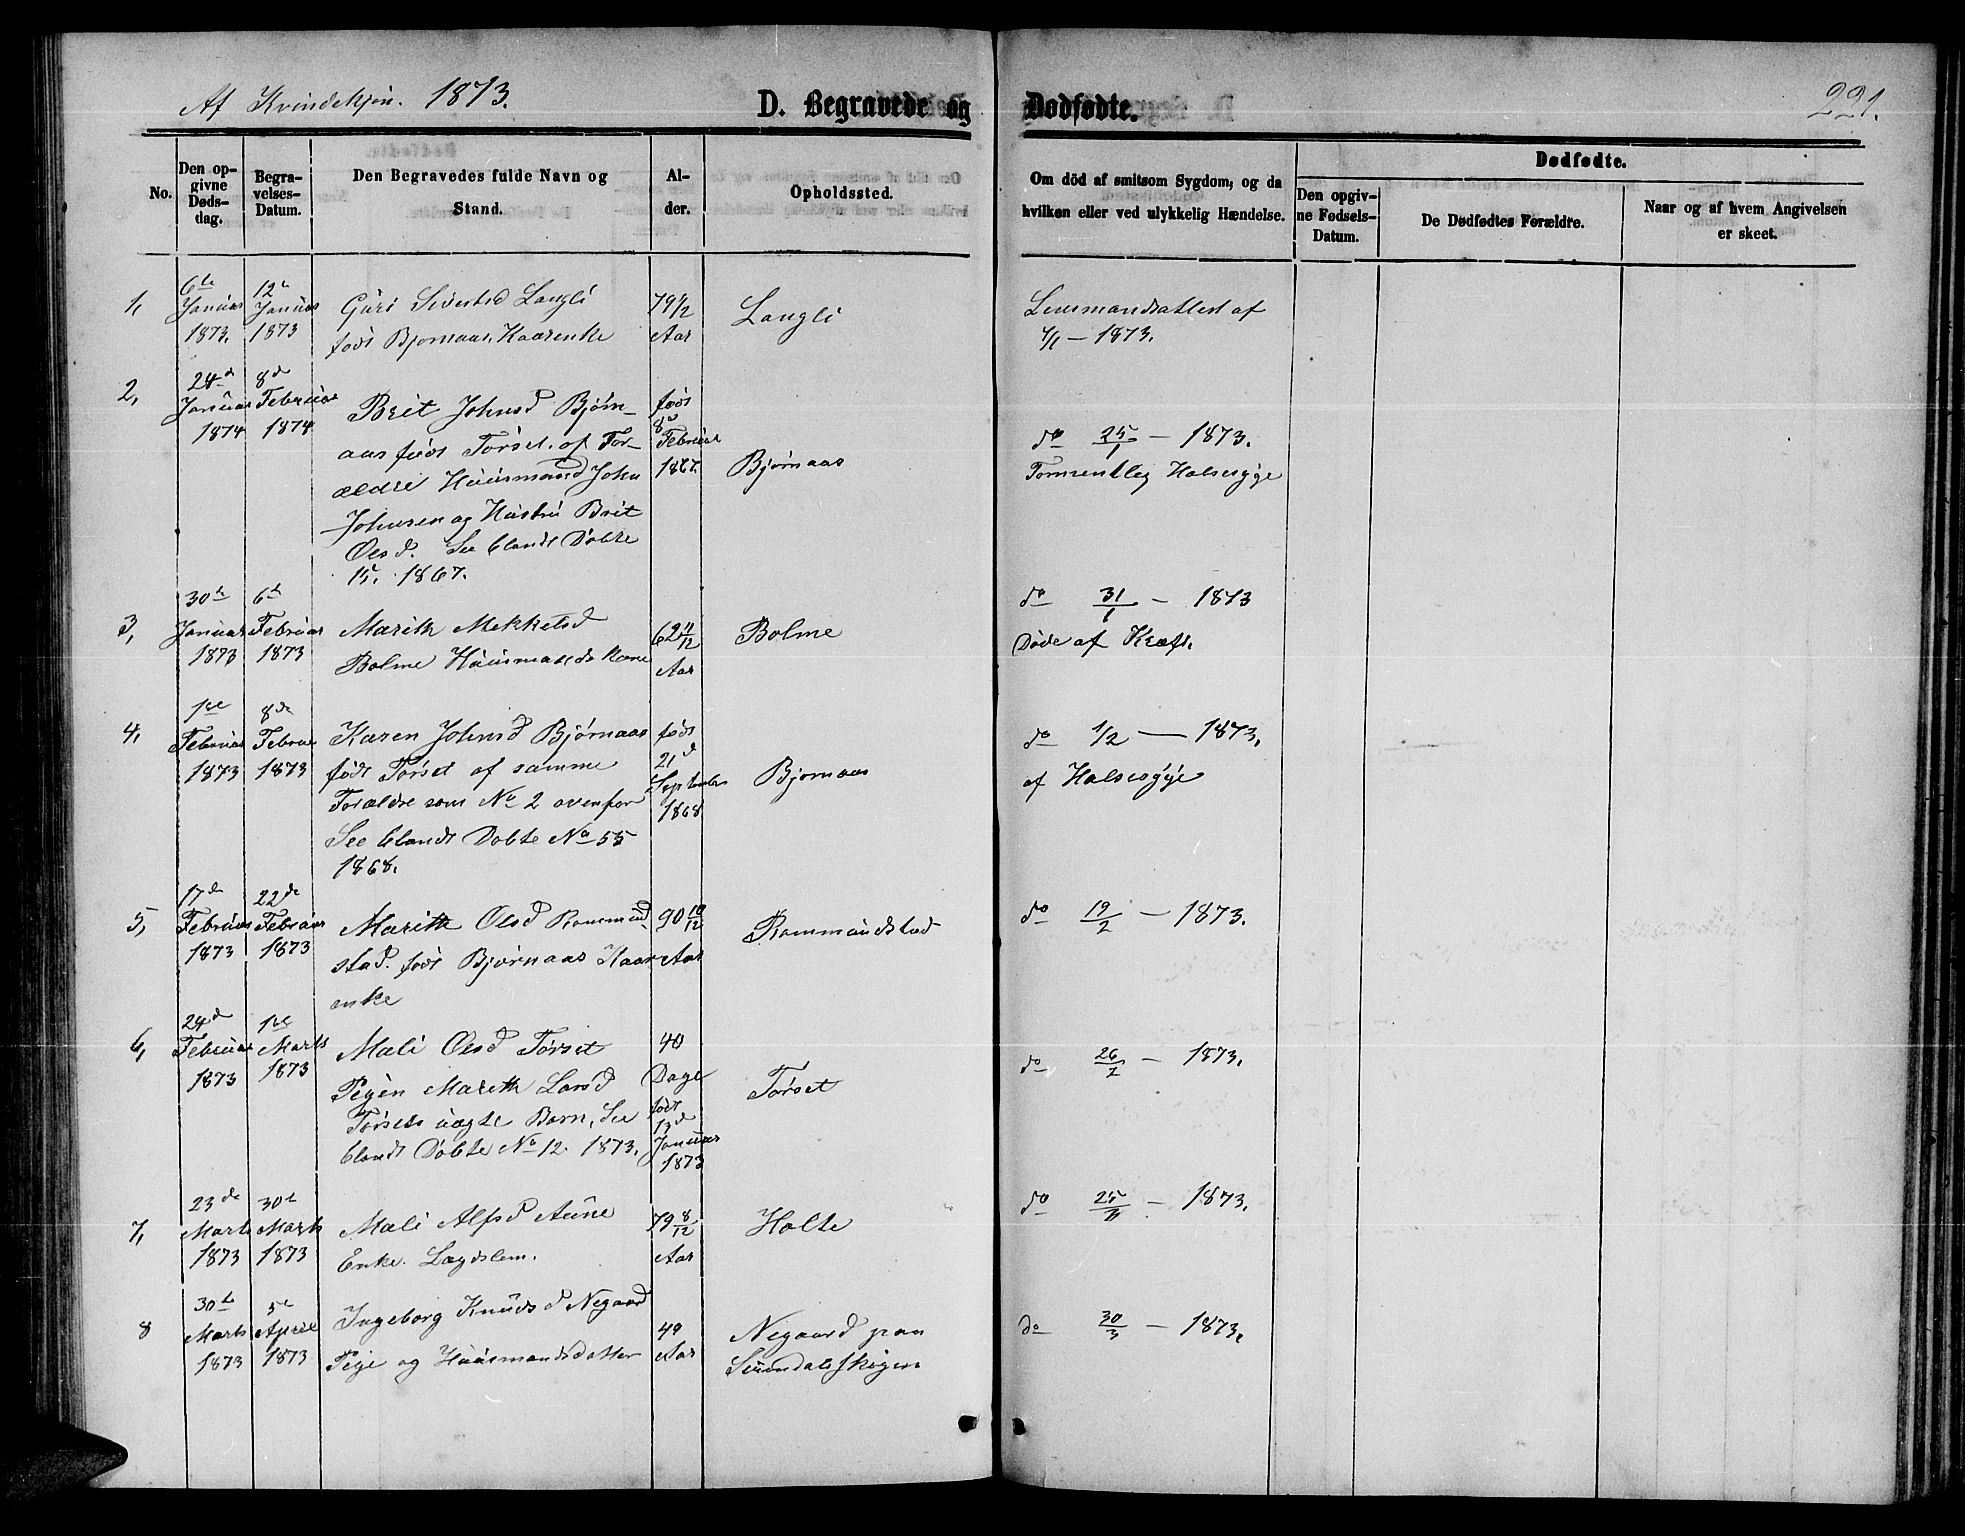 Af Kvindekjøn. 1873.
D. Begravede og Dødfødte.
221.
No.
Den opgivne Dødsdag.
Begravelses-Datum.
Den Begravedes fulde Navn og Stand.
Alder.
Opholdssted.
Om död af smitsom Sygdom, og da hvilken eller ved ulykkelig Hændelse.
Dødfødte.
Den opgivne Fødsels-Datum.
De Dødfødtes Forældre.
Naar og af hvem Angivelsen er skeet.
1,
6te Januar 1873.
12te Januar 1873
Guri Sivertsd Langli
født Bjørnaas, Kaarenke
79 1/2 Aar
Langli
Lensmandsattest af
1873.
2,
24de Januar 1874
8de Februar 1874
Brit Johnsd Bjørn-
aas født Tørset. af For-
ældre Huusmand John
Johnsen og Hustru Brit
Olsd. See blandt Døbte
15, 1867.
født 8de Februar 1867.
Bjørnaas
do 25/1 — 1873.
Halssyge
3,
30te Januar 1873
6te Februar 1873
Marith Mekkelsd
Bolme Huusmands Kone
62 11/12 Aar
Bolme
do 31/1 — 1873
Døde af Kræft.
4,
1ste Februar 1873
8de Februar 1873
Karen Johnsd Bjørnaas
født Tørset af samme
Forældre som No 2 ovenfor
See blandt Døbte No 55
1868.
født 21de September 1868
Bjørnaas
do 1/2 — 1873.
af Halssyge
5,
17de Februar 1873
22de Februar 1873
Marith Olsd Rommund-
stad. født Bjørnaas Kaar-
enke
90 10/12 Aar
Rommundstad
do 19/2 — 1873.
6,
24de Februar 1873
1ste Marts 1873
Mali Olsd Tørset
Pigen Marith Larsd
Tørsets uægte Barn, See
blandt Døbte No 12. 1873.
40 Dage født 13de Januar 1873
Tørset
do 26/2 — 1873.
7,
23de Marts 1873
30te Marts 1873
Mali Alfsd Aune
Enke. Lægdslem.
79 8/12 Aar
Holte
do 25/3 — 1873.
8
30te Marts 1873
5te April 1873
Ingeborg Knudsd Negaard
Pige og Huusmandsdatter
49 Aar
Negaard paa
Surendalsskogen
do 30/3 — 1873.